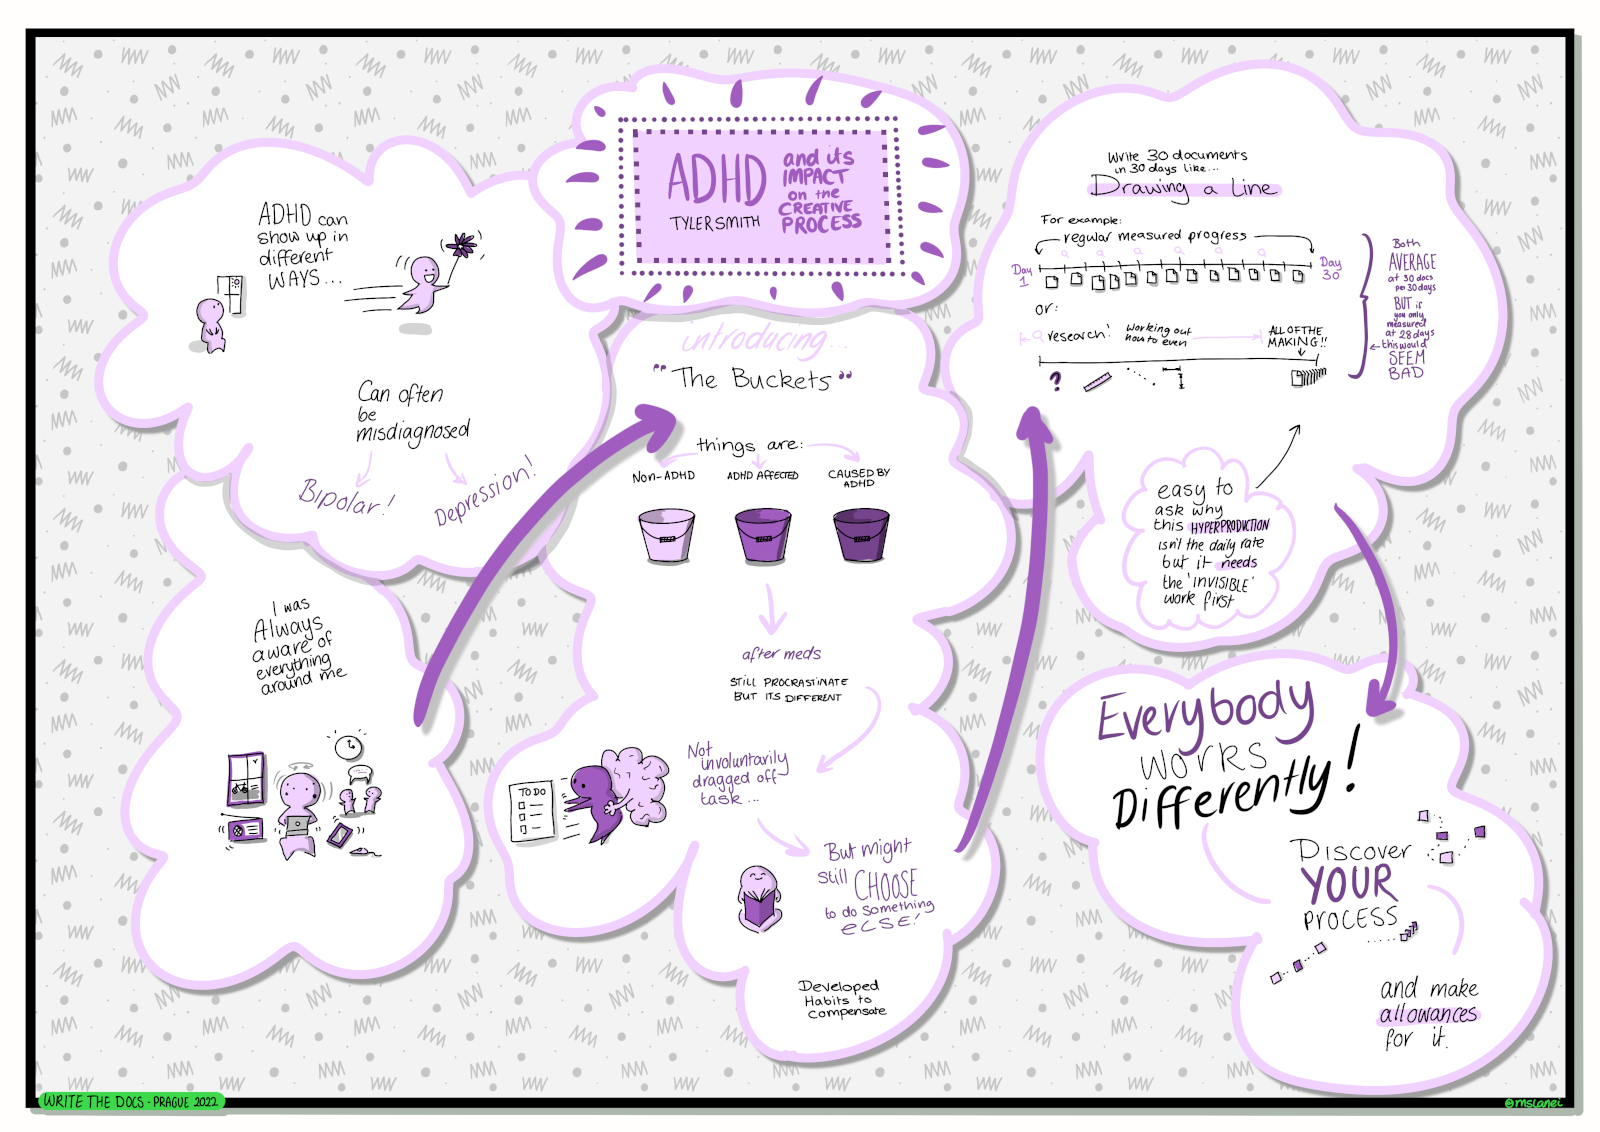 ADHD
TYLER SMITH
and its
IMPACT
on the
CREATIVE
PROCESS
ADHD can
show up in
different
WAYS...
Can often
be
misdiagnosed
Bipolar!
Depression!
I was
Always
aware of
everything
around me
introducing...
"The Buckets"
things are:
NON-ADHD
ADHD AFFECTED
CAUSED BY
ADHD
after meds
STILL PROCRASTINATE
BUT ITS DIFFERENT
TO DO
Not
involuntarily
dragged off
task...
But might
still CHOOSE
to do something
ELSE!
Developed
Habits to
compensate
Write 30 documents
in 30 days like...
Drawing a Line
For example:
regular measured progress
Day
1
Day
30
or:
research!
Working out
how to even
ALL OF THE
MAKING!!
Both
AVERAGE
at 30 docs
per 30 days
BUT if
you only
measured
at 28 days
this would
SEEM
BAD
easy to
ask why
this HYPERPRODUCTION
isn't the daily rate
but it needs
the 'INVISIBLE'
work first
Everybody
WORKS
Differently!
DISCOVER
YOUR
PROCESS
and make
allowances
for it.
WRITE THE DOCS - PRAGUE 2022
@mslanei